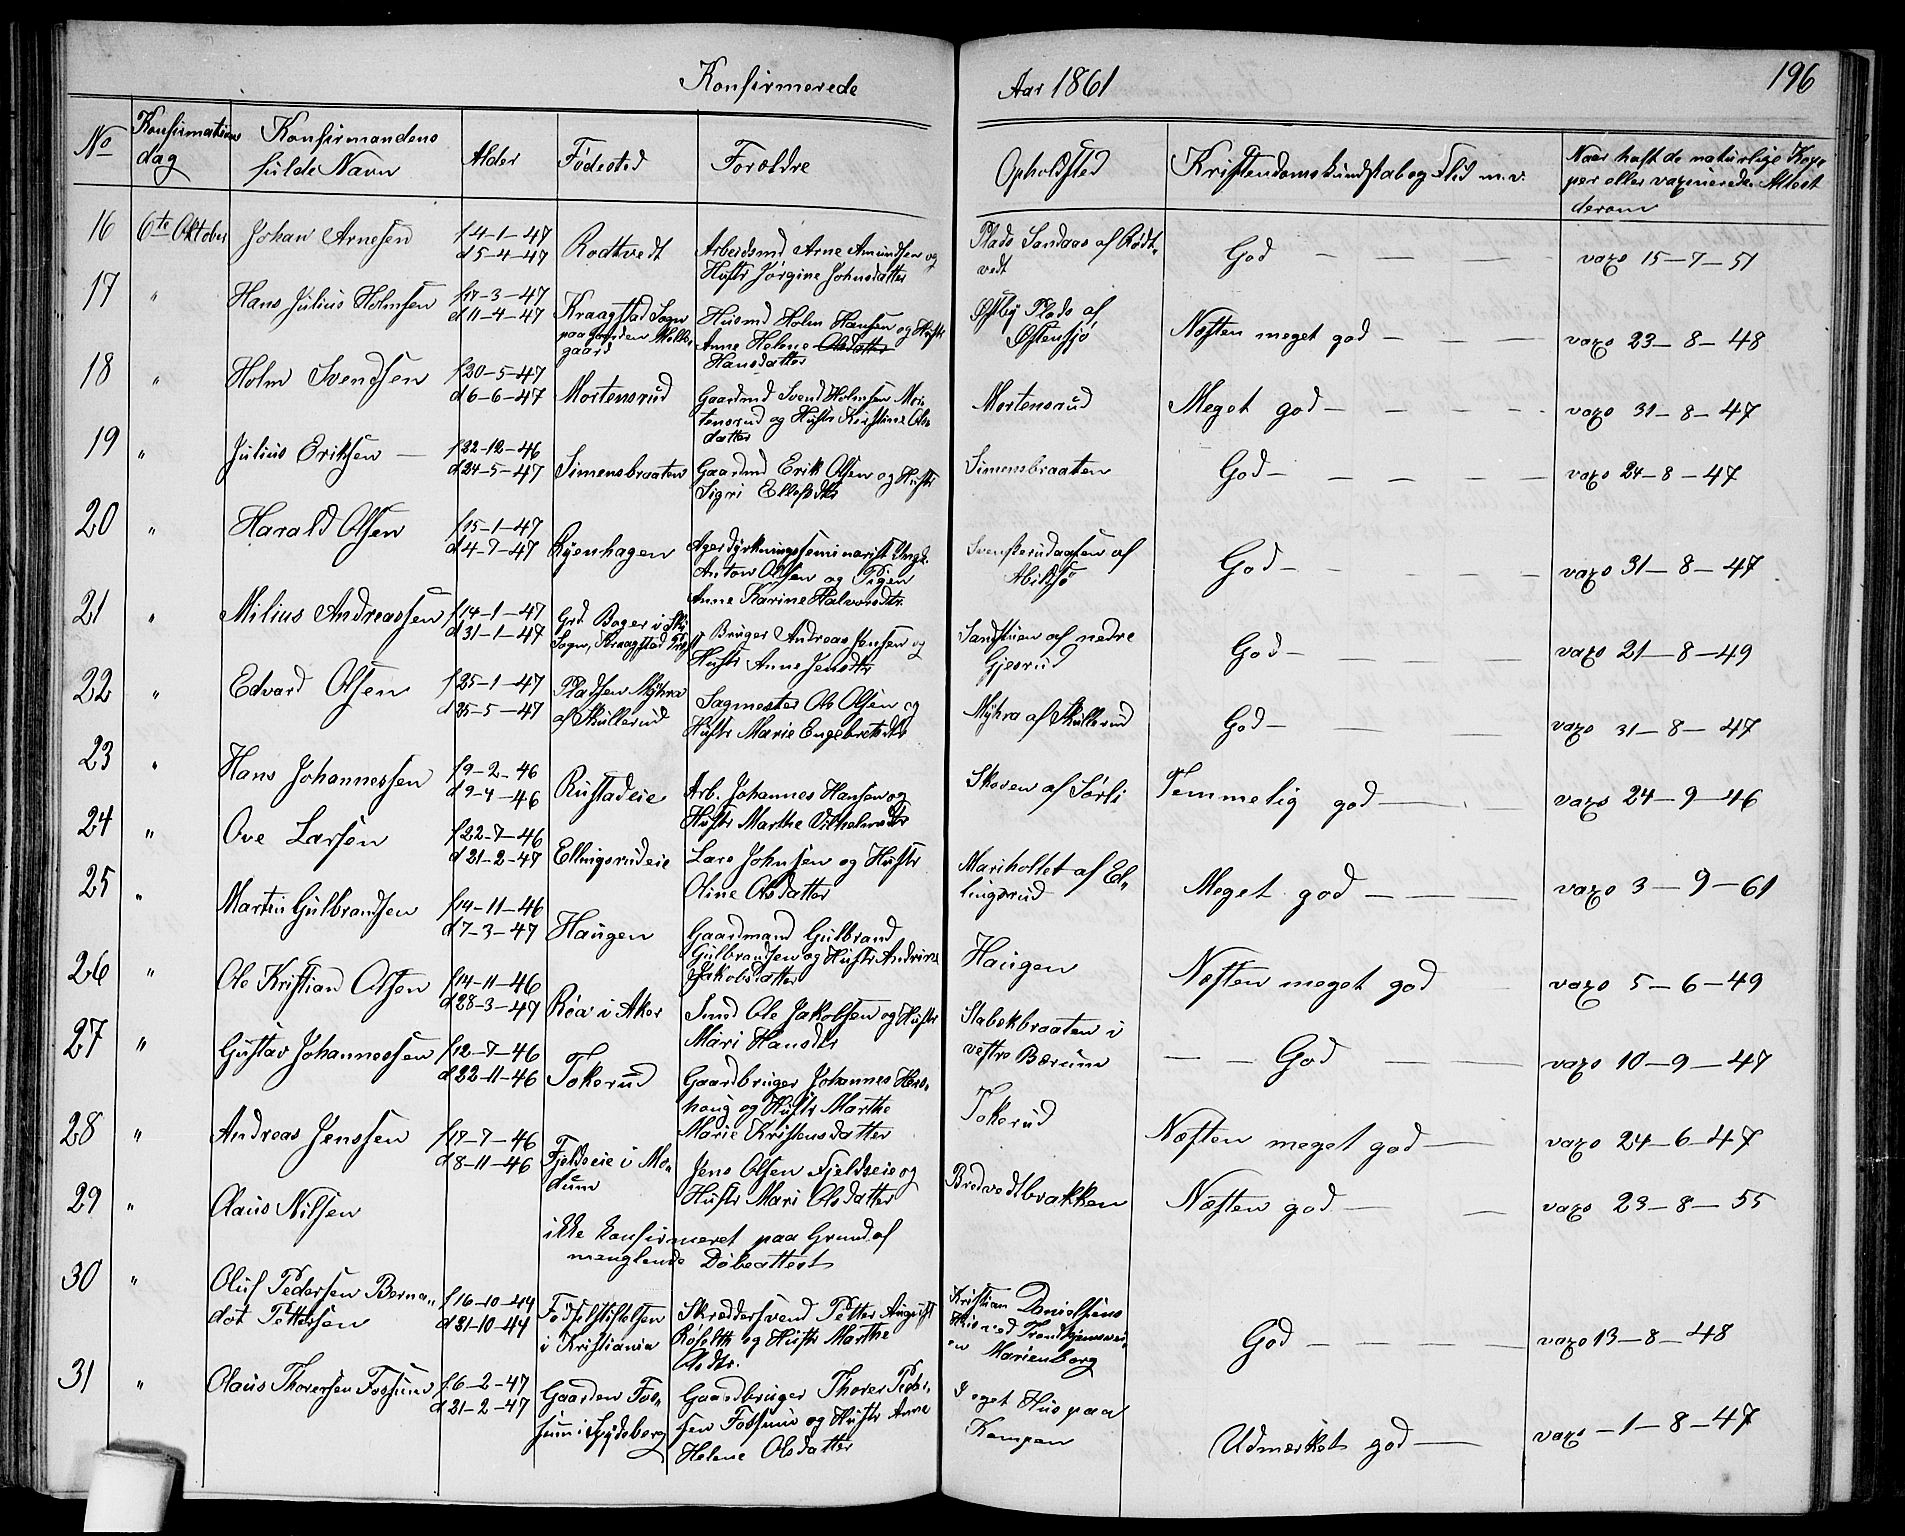 Konfirmerede Aar 1861 196
No Konfirmations dag Konfirmandens fulde Navn Alder Fødested Forældre Opholdsted Kristendomskundskab og Flid m.v. Naar haft de naturlige Kopper eller vaxinerede Attest derom
16 6te Oktober Johan Arnesen f 4-1-47 Rodtvedt Arbeidsmd Arne Amundsen og Plads Sandaas af Rødt- God vaxs 15-7-51
d 5-4-47 Hustr Jørgine Johnsdatter vedt
17 " Hans Julius Holmsen f 17-3-47 Kraagstad Sogn Husmd Holm Hansen og Hustr Østby Plads af Næsten meget god vaxs 23-8-48
d 11-4-47 paa Gaarden gaard Anne Helene Olsdatter Østensjø
Hansdatter
18 " Holm Svendsen f 20-5-47 Mortensrud Gaardmd Svend Holmsen Mor- Mortensrud Meget god vaxs 31-8-47
d 6-6-47 tensrud og Hustr Kirstine Ols
datter
19 " Julius Eriksen f 22-12-46 Simensbraaten Gaardmd Erik Olsen og Hustr Simensbraaten God vaxs 24-8-47
d 24-5-47 Sigri Ellefsdtr
20 " Harald Olsen f 15-1-47 Ryenhagen Agerdyrkningsseminarist Ungk. Svenskerudaasen af God vaxs 31-8-47
d 4-7-47 Anton Olsen og Pigen Abildsø
Anne Karine Halvorsdtr.
21 " Milius Andreassen f 14-1-47 Grd. Bøger i Ski Bruger Andreas Jensen og Sandstuen af nedre God vaxs 21-8-49
d 31-1-47 Sogn, Kraagstad Prgst Hustr Anne Jensdtr Gjesrud
22 " Edvard Olsen f 25-1-47 Pladsen Myhra Sagmester Ole Olsen og Myhra af Skullerud God vaxs 31-8-47
d 25-5-47 af Skullerud Hustr Marie Engebretsdtr
23 " Hans Johannessen f 9-2-46 Rustadeie Arb. Johannes Hansen og Skoren af Sørli Temmelig god vaxs 24-9-46
d 9-4-46 Hustr Marthe Vilhelmsdtr
24 " Ove Larsen f 22-7-46 Ellingsrudeie Lars Johnsen og Hustr Mariholtet af El- Meget god vaxs 3-9-61
d 21-2-47 Oline Olsdatter lingsrud
25 " Martin Gulbrandsen f 14-11-46 Haugen Gaardmand Gulbrand Haugen Næsten meget god vaxs 5-6-49
d 7-3-47 Gulbrandsen og Hustr Andrine
Jakobsdatter
26 " Ole Kristian Olsen f 14-11-46 Røa i Aker Smed Ole Jakobsen og Hustr Stabekbraaten i God vaxs 10-9-47
d 28-3-47 Mari Hansdtr vestre Bærum
27 " Gustav Johannessen f 12-7-46 Tokerud Gaardbruger Johannes Hers- Tokerud Næsten meget god vaxs 24-6-47
d 22-11-46 houg og Hustr Marthe
Marie Kristensdatter
28 " Andreas Jenssen f 17-7-46 Fjeldseie i Mo- Jens Olsen Fjeldseie og Bredvedtbrakken Næsten god vaxs 23-8-55
d 8-11-46 dum Hustr Mari Olsdatter
29 " Olaus Nilsen ikke konfirmeret paa Grund af
manglende Døbeattest
30 " Oluf Pedersen Berna- f 16-10-44 Fødselsstiftelsen Skræddersvend Petter August Kristian Danielsens God vaxs 13-8-48
dot Pettersen d 31-10-44 i Kristiania og Hustr Marthe Hus ved Trondhjemsvei-
Olsdtr. en Marienborg
31 " Olaus Thoresen Fossum f 6-2-47 Gaarden Fos- Gaardbruger Thorer Peder- I eget Hus paa Udmærket god vaxs -1-8-47
d 21-2-47 sum i Spydeberg sen Fossum og Hustr Anne Kampen
Helene Olsdatter